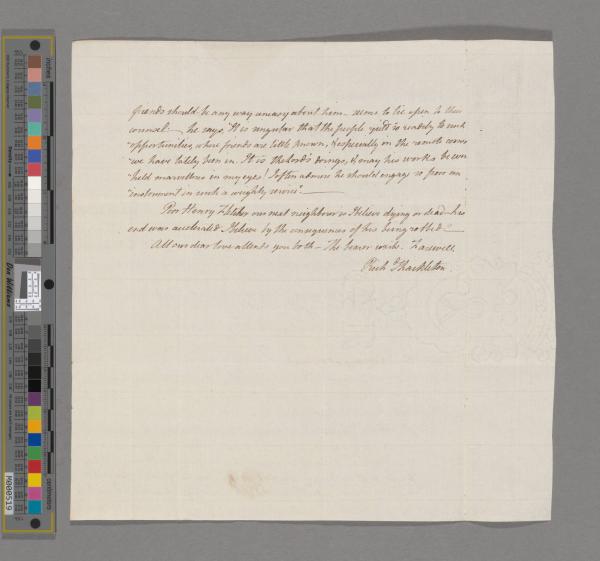 friends should be any way uneasy about him – seems to lie open to their
counsel: — he says, "It is singular that the people yield so readily to such
"opportunities, where friends are little known, & especially in the remote corners
"we have lately been in. It is the Lord's doings, & may his works be ever
"held marvellous in my eyes! I often admire he should engage so poor an
"instrument in such a weighty service". —
Poor Henry our next neighbour is I believe dying or dead – his
end was accelerated I believe by the consequences of his being robbed. —
All our dear love attends you both – The bearer waits. Farewell,
Richd Shackleton.
inches
centimetres
Don Williams
M000519